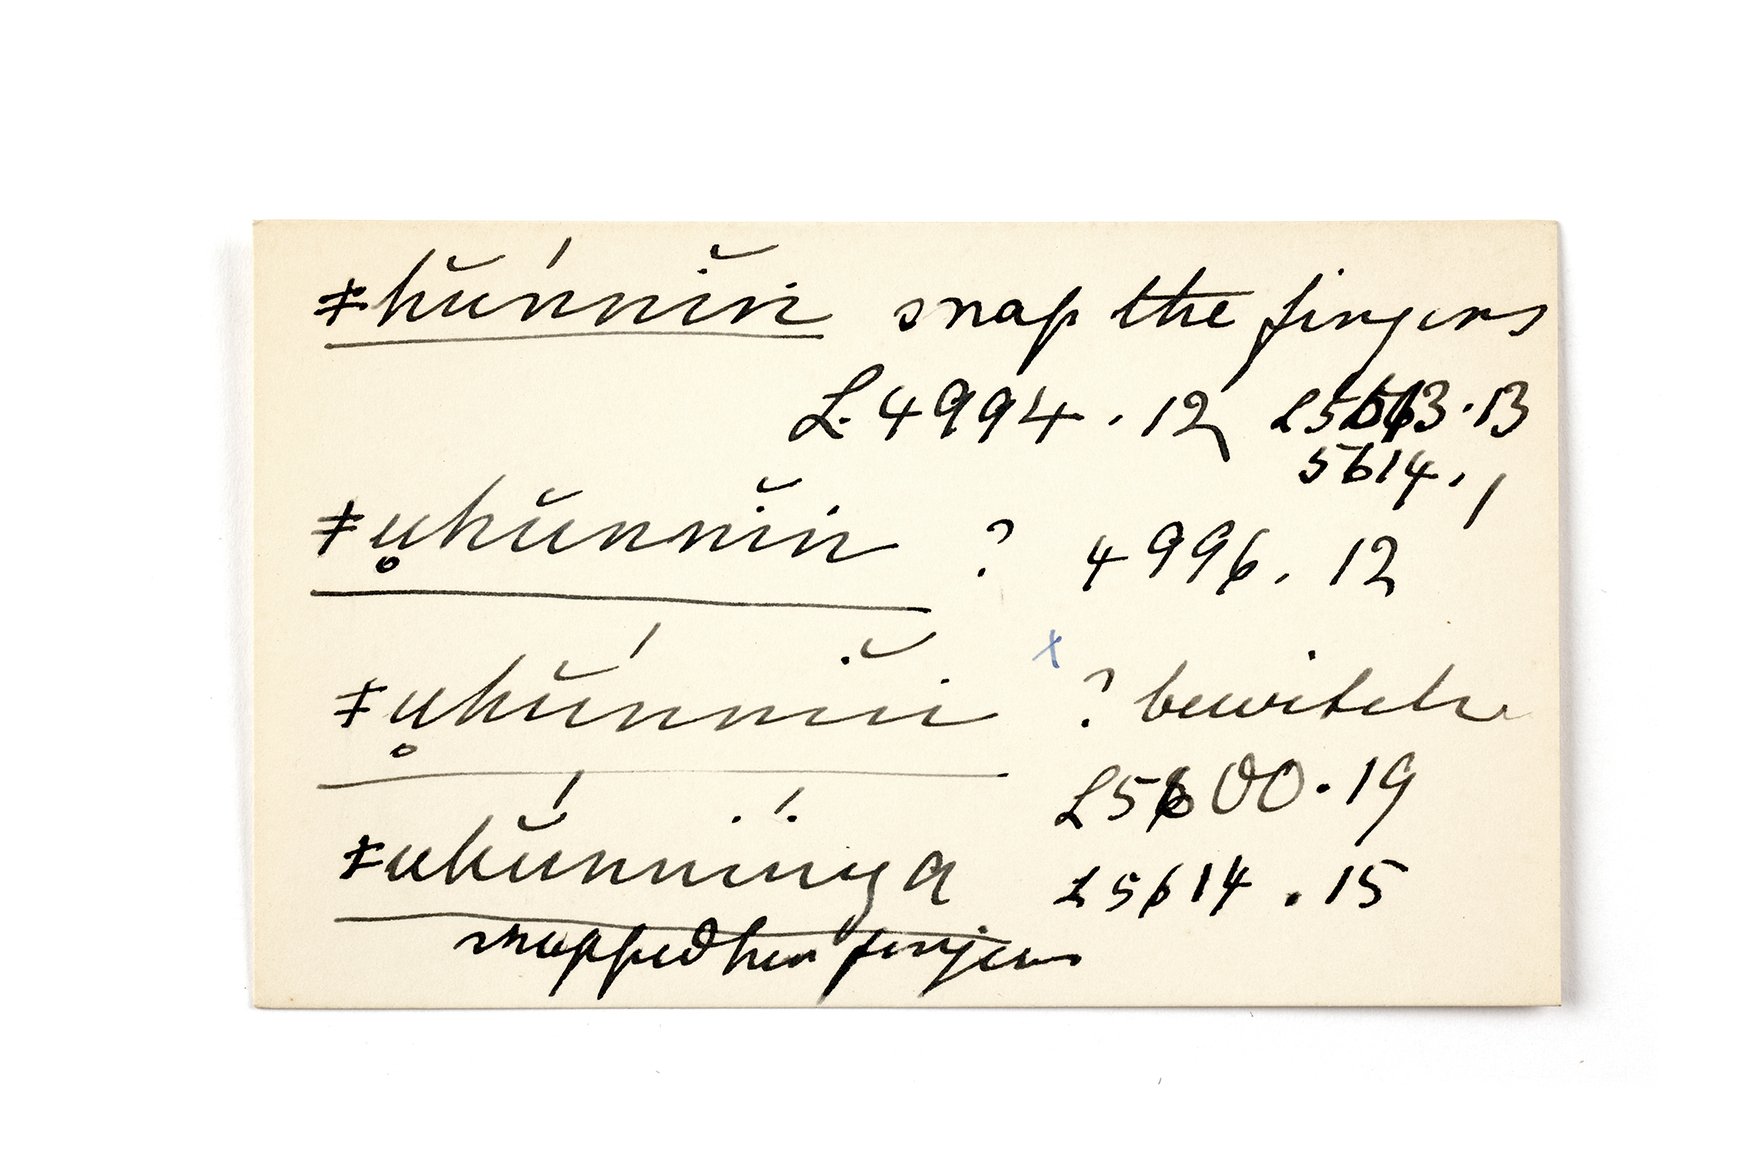 ǂhŭ́nnĭn snap the fingers
L. 4994. 12 L5613.13
5614. 1
ǂu̥hŭnnĭn ? 4996. 12
x
ǂu̥hŭ́nnĭn ? bewitch
L5600.19
ǂuhŭ́nnínya L5614.15
snapped her fingers